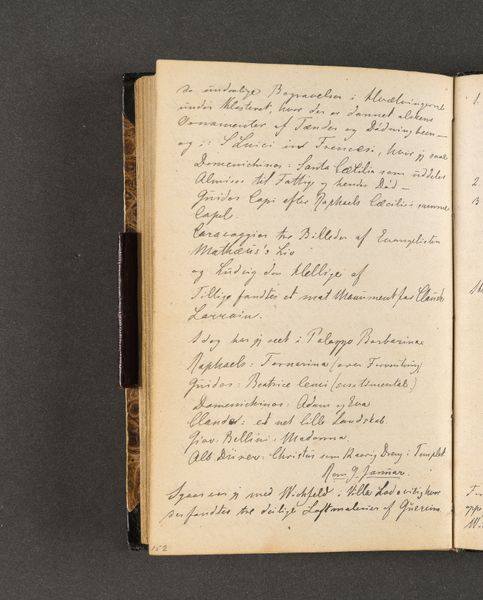 de underlige Begravelser i Hvælvingerne
under Klosteret, hvor der er dannet alskens
Ornamenter af Tænder og Dødningbeen —
og i: S Luici in Francesi, hvor jeg saae
Domenichinos: Santa Cæcilia som uddeler
Almisser til Fattige og hendes Død —
Guidos Copi efter Raphaels Cæcilia i samme
Capel.
Caravaggios tre Billeder af Evangelisten
Mathæus's Liv
og Ludvig den Hellige af
Tillige fandtes et smat Monument for Claude
Lorrain.
Idag har jeg seet i Palazzo Barbarina
Raphaels: Fornarina (over Forventning)
Guidos: Beatrice Cenci
Domenichinos: Adam og Eva
Claudes: et net lille Landskab.
Giov. Bellini: Madonna.
Alb Dürer: Christus som Dreng i Templet
Rom 9 Januar.
Igaar var jeg med Wichfeld i Villa Ludovisi, hvor
der fandtes tre deilige Loftmalerier af Guercino
152
1.
2.
3